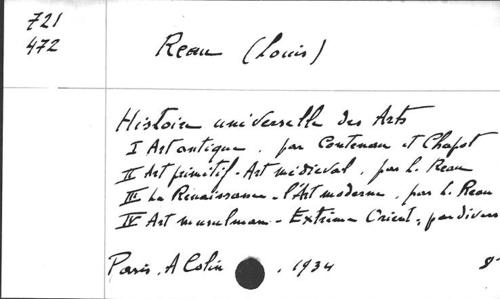 721
472
Reau (Louis)
Histoire universelle des Arts
I Art antique, par Contenau et Chapot
II Art primitif - Art médiéval, par L. Reau
III La Renaissance - l'Art moderne, par L. Reau
IV Art musulman - Extrême Orient, par divers
Paris, A Colin , 1934 8°